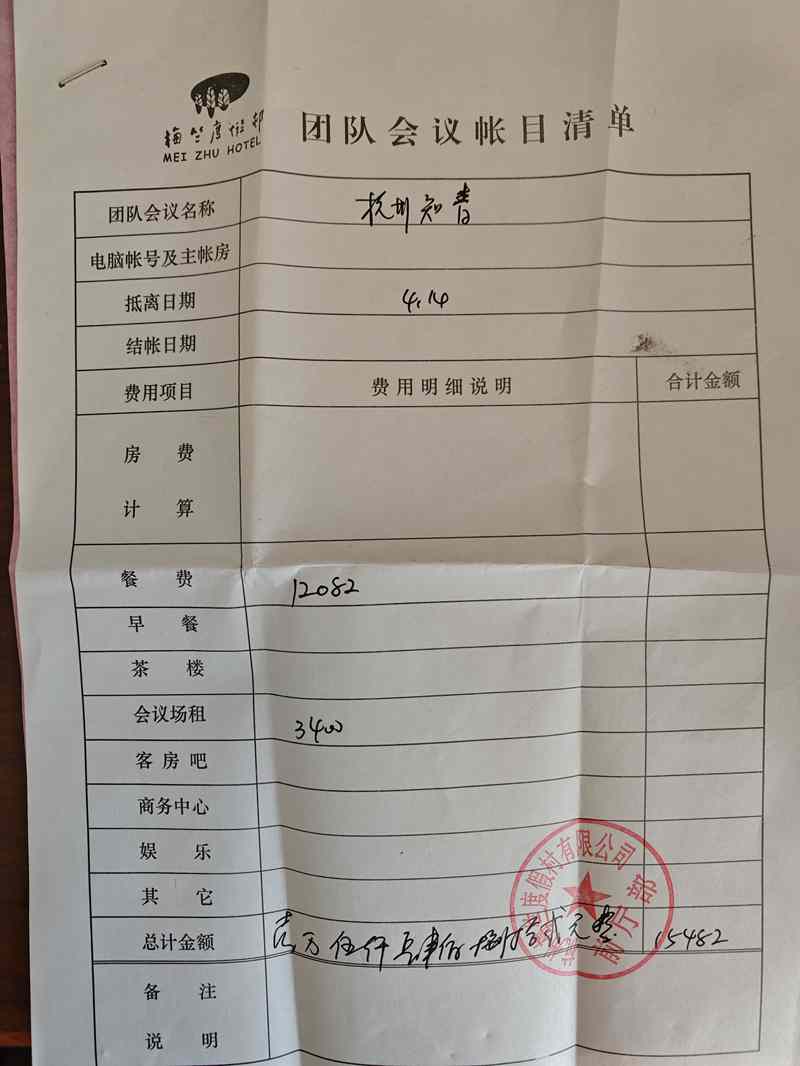 梅竺度假邨
MEI ZHU HOTEL
团队会议帐目清单
团队会议名称 杭州知青
电脑帐号及主帐房
抵离日期 4.14
结帐日期
费用项目 费用明细说明 合计金额
房 费
计 算
餐 费 12082
早 餐
茶 楼
会议场租 3400
客房吧
商务中心
娱 乐
其 它
总计金额 壹万伍仟肆佰捌拾贰元整 15482
备 注
说 明
度假村有限公司
前厅部